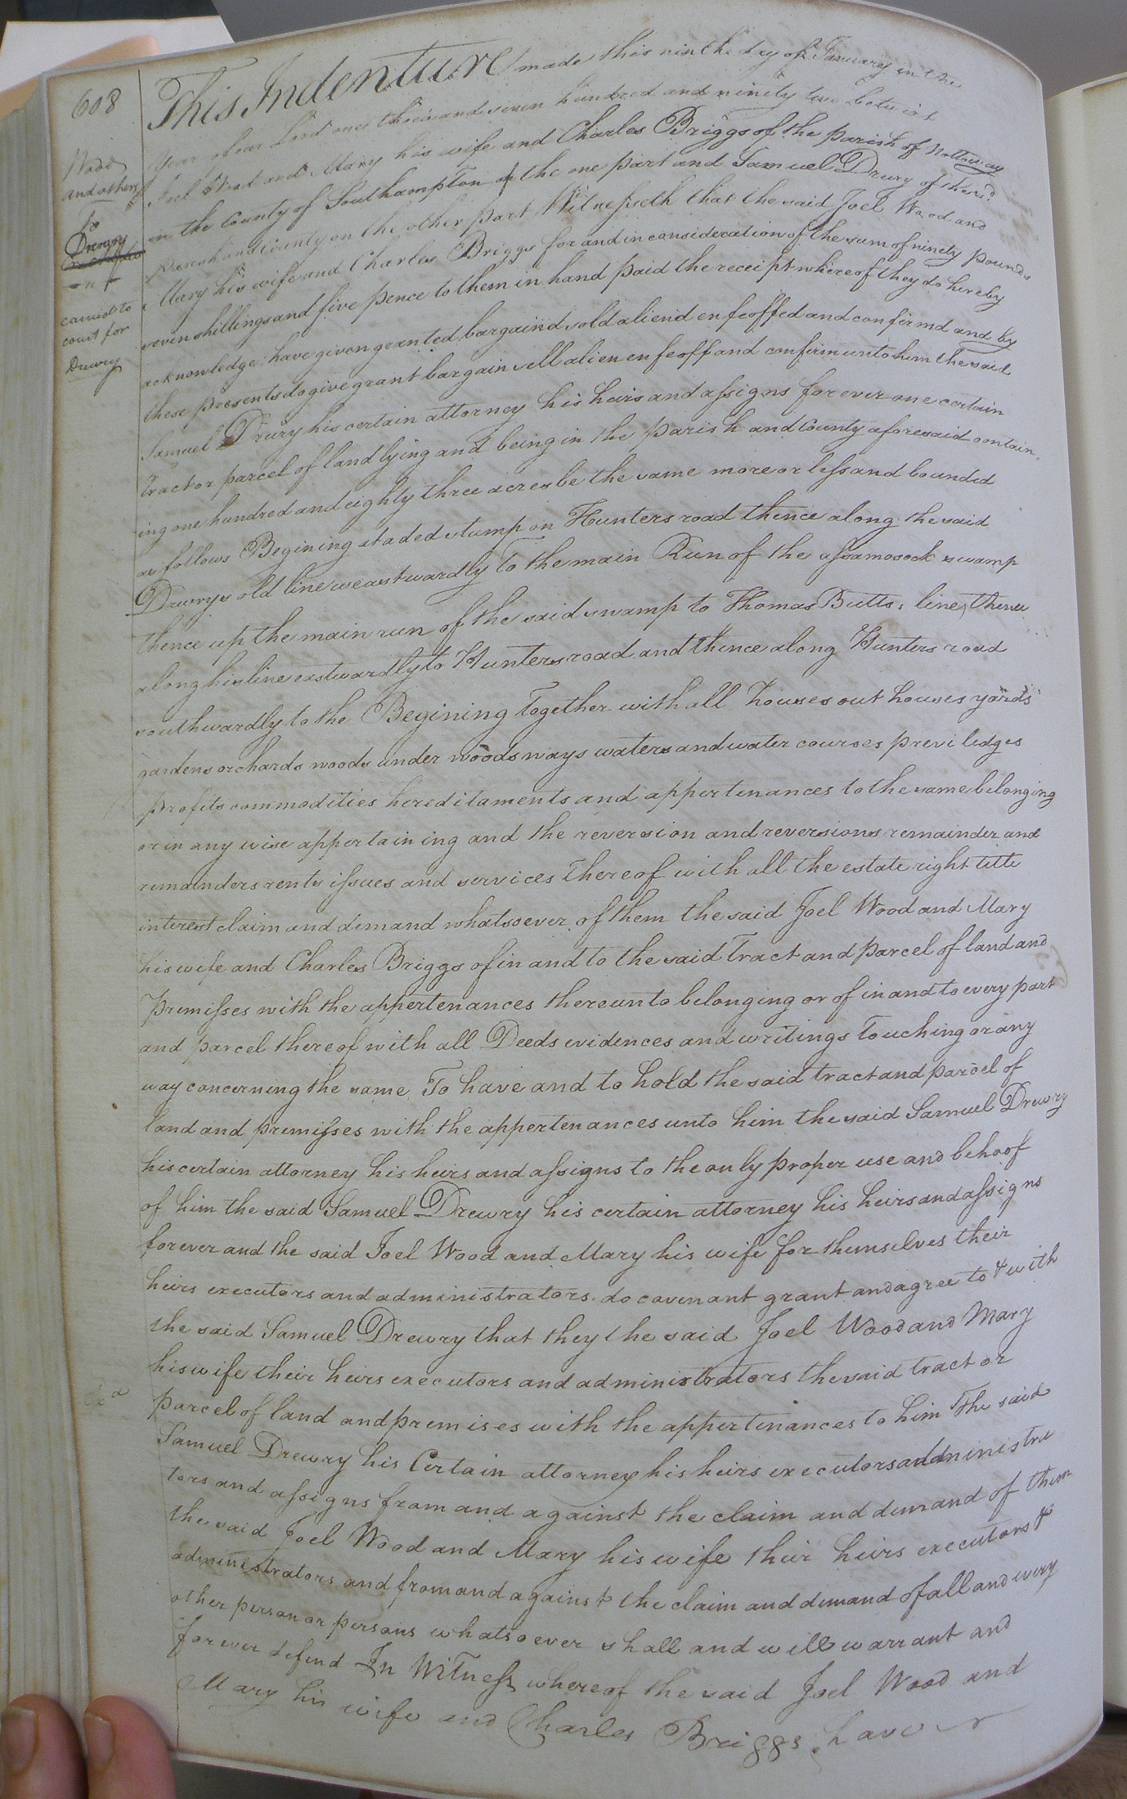 608
Wood
and others
to
Drewry
carried to
court for
Drewry
This Indenture made this ninth day of January in the
year of our Lord one thousand seven hundred and ninety two between
Joel Wood and Mary his wife and Charles Briggs of the parish of Nottoway
in the County of Southampton of the one part and Samuel Drury of the said
parish and County on the other part Witnesseth that the said Joel Wood and
Mary his wife and Charles Briggs for and in consideration of the sum of ninety pounds
seven shillings and five pence to them in hand paid the receipt whereof they do hereby
acknowledge have given granted bargaind sold aliend enfeoffed and confirmd and by
these presents do give grant bargain sell alien enfeoff and confirm unto him the said
Samuel Drury his certain attorney his heirs and assigns forever one certain
tract or parcel of land lying and being in the parish and County aforesaid contain
ing one hundred and eighty three acres be the same more or less and bounded
as follows Begining at a ded stump on Hunters road thence along the said
Drewrys old line weastwardly to the main Run of the assamoosock swamp
thence up the main run of the said swamp to Thomas Butts's line, thence
along his line eastwardly to Hunters road and thence along Hunters road
southwardly to the Begining Together with all houses out houses yards
gardens orchards woods under woods ways waters and water courses previledges
profits commodities hereditaments and appertenances to the same belonging
or in any wise appertaining and the reversion and reversions remainder and
remainders rents issues and services thereof with all the estate right title
interest claim and demand whatsoever of them the said Joel Wood and Mary
his wife and Charles Briggs of in and to the said Tract and parcel of land and
Premisses with the appertenances thereunto belonging or of in and to every part
and parcel thereof with all Deeds evidences and writings Touching or any
way concerning the same To have and to hold the said tract and parcel of
land and premisses with the appertenances unto him the said Samuel Drewry
his certain attorney his heirs and assigns to the only proper use and behoof
of him the said Samuel Drewry his certain attorney his heirs and assigns
forever and the said Joel Wood and Mary his wife for themselves their
heirs executors and administrators do covenant grant and agree to & with
the said Samuel Drewry that they the said Joel Wood and Mary
his wife their heirs executors and administrators the said tract or
parcel of land and premises with the appertinances to him The said
Samuel Drewry his Certain attorney his heirs executors administra
tors and assigns from and against the claim and demand of them
the said Joel Wood and Mary his wife their heirs executors &
administrators and from and against the claim and demand of all and every
other person or persons whatsoever shall and will warrant and
forever defend In Witness whereof the said Joel Wood and
Mary his wife and Charles Briggs have